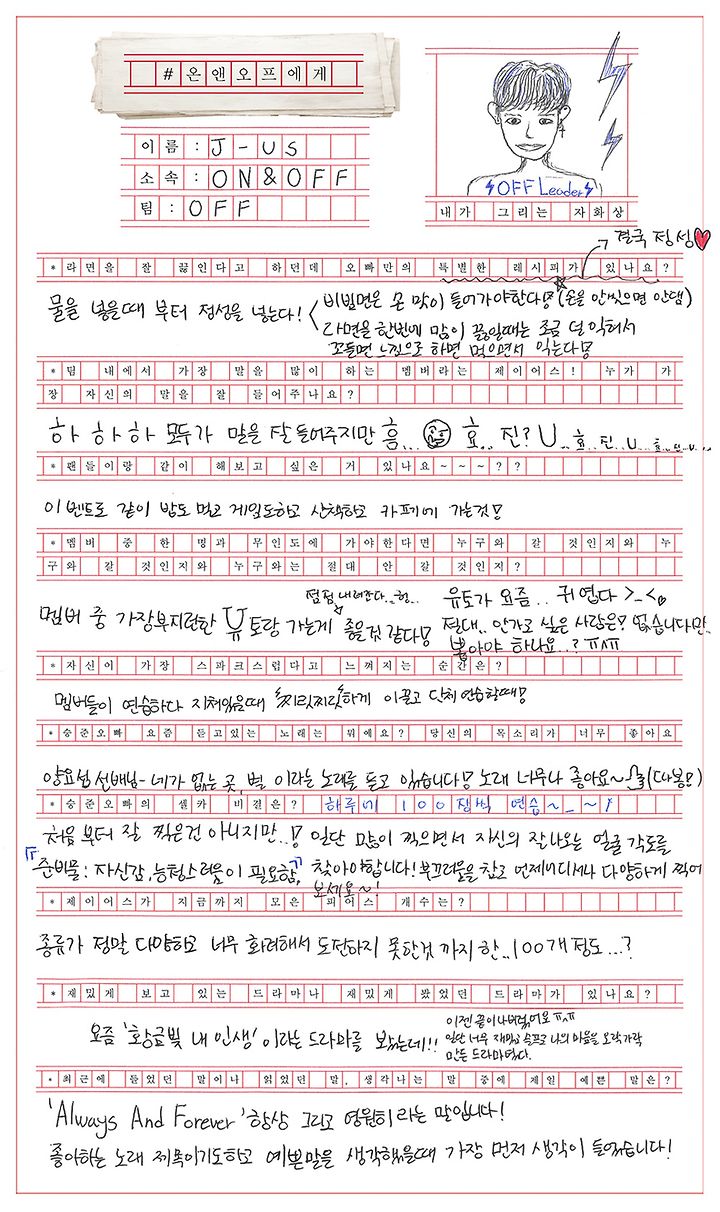 #온앤오프에게
이름 : J-US
소속 : ON&OFF
팀 : OFF
OFF Leader
내가 그리는 자화상
→ 결국 정성♥
*라면을 잘 끓인다고 하던데 오빠만의 특별한 레시피가 있나요?
물을 넣을때 부터 정성을 넣는다!
비빔면은 손 맛이 들어가야한다! (손을 안씻으면 안댐)
라면을 한번에 많이 끓일때는 조금 덜 익혀서
꼬들면 느낌으로 하면 먹으면서 익는다!
*팀 내에서 가장 말을 많이 하는 멤버라는 제이어스! 누가 가
장 자신의 말을 잘 들어주나요?
하 하 하 모두가 말을 잘 들어주지만 흠... 효.. 진? U..효..진..U...효..진..U....
*팬들이랑 같이 해보고 싶은 거 있나요~~~??
이벤트로 같이 밥도 먹고 게임도하고 산책하고 카페에 가는것!
*멤버 중 한 명과 무인도에 가야한다면 누구와 갈 것인지와 누
구와 갈 것인지와 누구와는 절대 안 갈 것인지?
멤버 중 가장부지런한 유토랑 가는게 좋을것 같다!
점점 내려간다..힝..
유토가 요즘.. 귀엽다 >_<
절대.. 안가고 싶은 사람은! 없습니다만..
뽑아야 하나요..? ㅠㅅㅠ
*자신이 가장 스파크스럽다고 느껴지는 순간은?
멤버들이 연습하다 지쳐있을때 찌릿찌릿하게 이끌고 단체 연습할때!
*승준오빠 요즘 듣고있는 노래는 뭐에요? 당신의 목소리가 너무 좋아요
양요섭 선배님- 네가 없는 곳, 별 이라는 노래를 듣고 있습니다! 노래 너무나 좋아요~ (따봉!)
*승준오빠의 셀카 비결은? 하루에 100장씩 연습~_~!
처음 부터 잘 찍은건 아니지만..! 일단 많이 찍으면서 자신의 잘나오는 얼굴 각도를
『준비물 : 자신감, 능청스러움이 필요함』 찾아야합니다! 부끄러움을 참고 언제어디서나 다양하게 찍어
보세요~!
*제이어스가 지금까지 모은 피어스 개수는?
종류가 정말 다양하고 너무 화려해서 도전하지 못한것 까지 한..100개 정도...?
*재밌게 보고 있는 드라마나 재밌게 봤었던 드라마가 있나요?
요즘 '황금빛 내 인생' 이라는 드라마를 봤는데!!
이젠 끝이나버렸어요 ㅠㅅㅠ
일단 너무 재밌고 슬프고 나의 마음을 오락가락
만든 드라마였다.
*최근에 들었던 말이나 읽었던 말, 생각나는 말 중에 제일 예쁜 말은?
'Always And Forever' 항상 그리고 영원히 라는 말입니다!
좋아하는 노래 제목이기도하고 예쁜말을 생각했을때 가장 먼저 생각이 들었습니다!